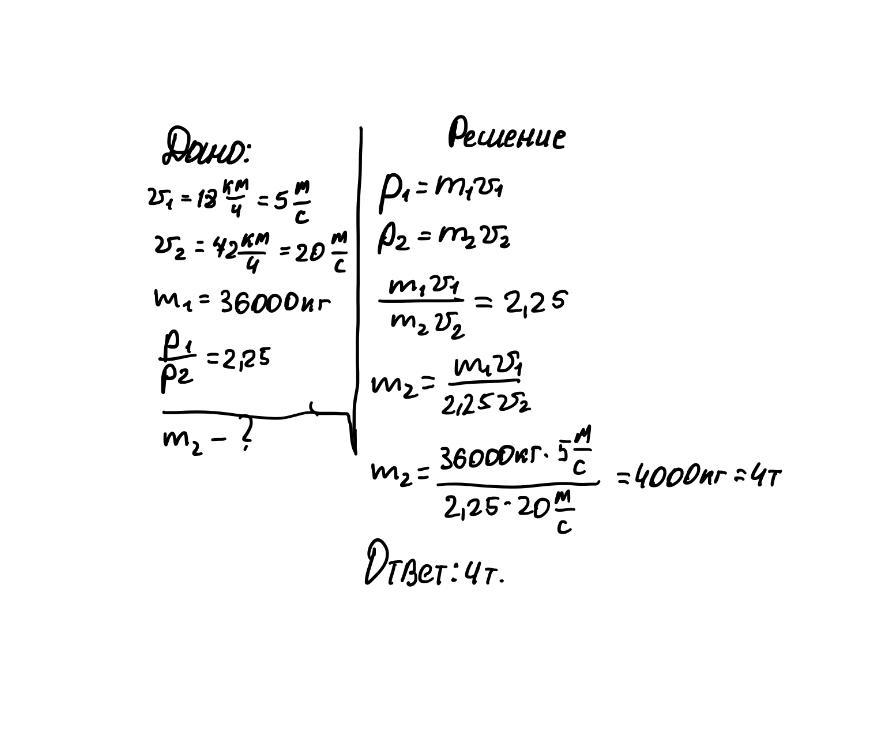 Дано:
v₁ = 18 км/ч = 5 м/с
v₂ = 72 км/ч = 20 м/с
m₁ = 36000кг
p₁/p₂ = 2,25
m₂ - ?
Решение
p₁ = m₁v₁
p₂ = m₂v₂
m₁v₁/m₂v₂ = 2,25
m₂ = m₁v₁/2,25v₂
m₂ = 36000кг · 5 м/с / 2,25 · 20 м/с = 4000кг = 4т
Ответ: 4т.